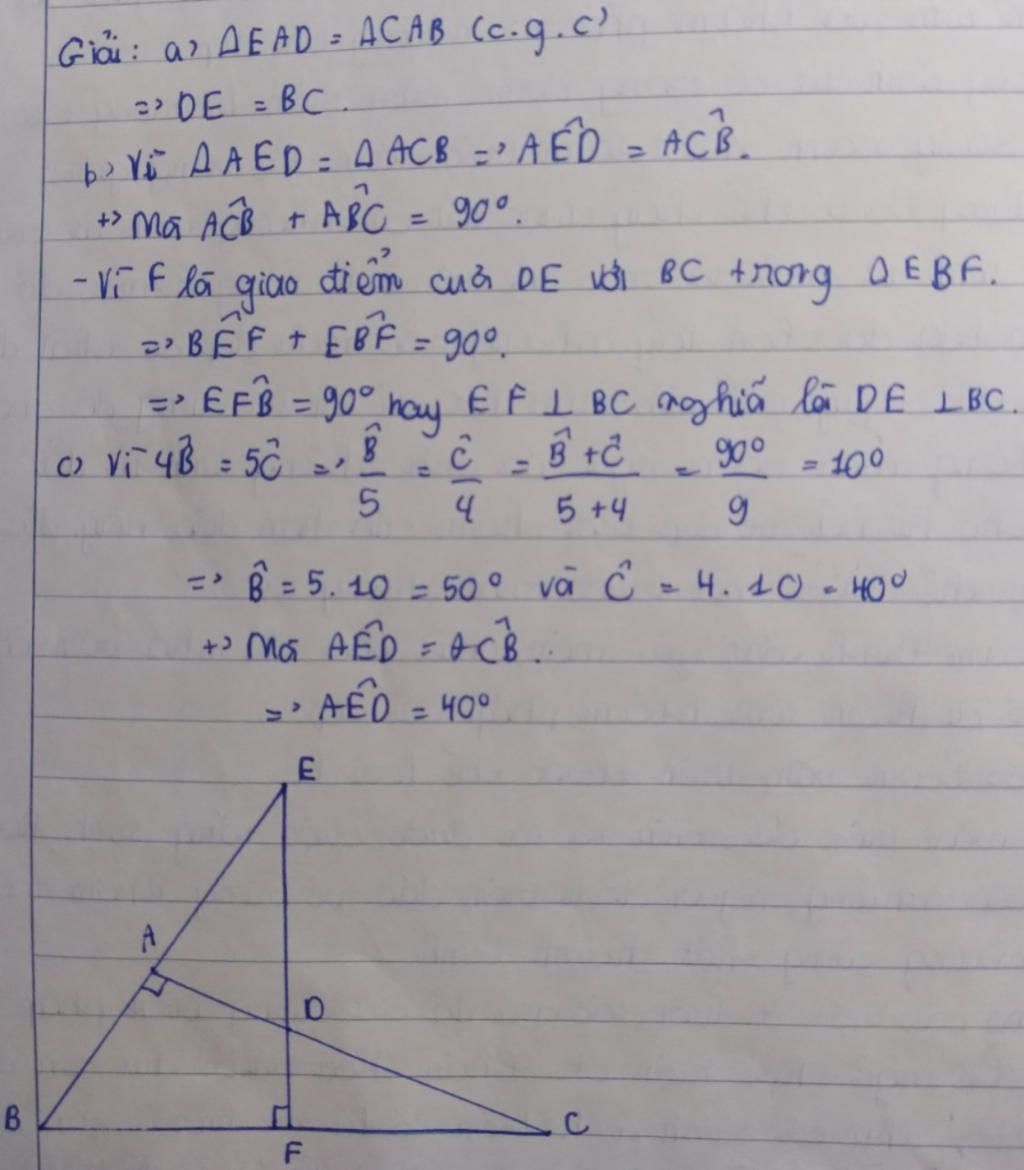 Giải: a> ΔEAD = ΔCAB (c.g.c)
=> DE = BC.
b> Vì ΔAED = ΔACB => AÊD = AĈB.
+> Mà AĈB + AB̂C = 90°.
- Vì F là giao điểm của DE với BC trong ΔEBF.
=> BÊF + EB̂F = 90°.
=> EF̂B = 90° hay EF ⊥ BC nghĩa là DE ⊥ BC.
c> Vì 4B̂ = 5Ĉ => B̂/5 = Ĉ/4 = (B̂ + Ĉ)/(5 + 4) = 90°/9 = 10°
=> B̂ = 5.10 = 50° và Ĉ = 4.10 = 40°
+> Mà AÊD = AĈB.
=> AÊD = 40°
E
A
D
B
C
F